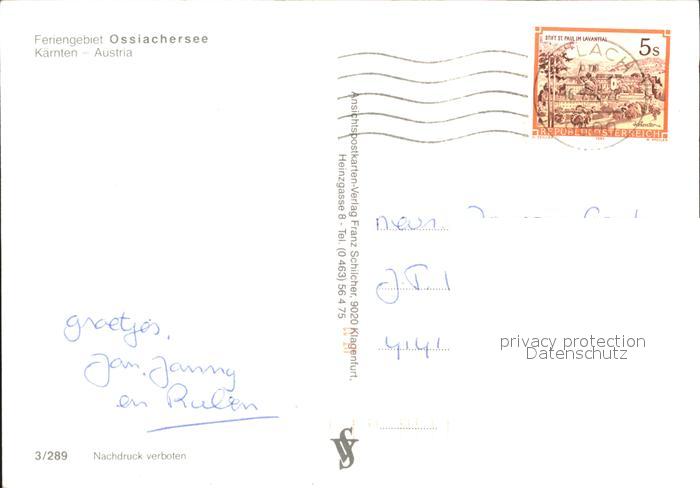 Feriengebiet Ossiachersee
Kärnten – Austria
STIFT ST. PAUL IM LAVANTTAL
5s
LACH
REPUBLIK ÖSTERREICH
Ansichtspostkarten-Verlag Franz Schilcher, 9020 Klagenfurt,
Heinzgasse 8 - Tel. (0 463) 56 4 75
J.T.
privacy protection
Datenschutz
groetjes,
Jan, Janny
en Ruben
3/289 Nachdruck verboten